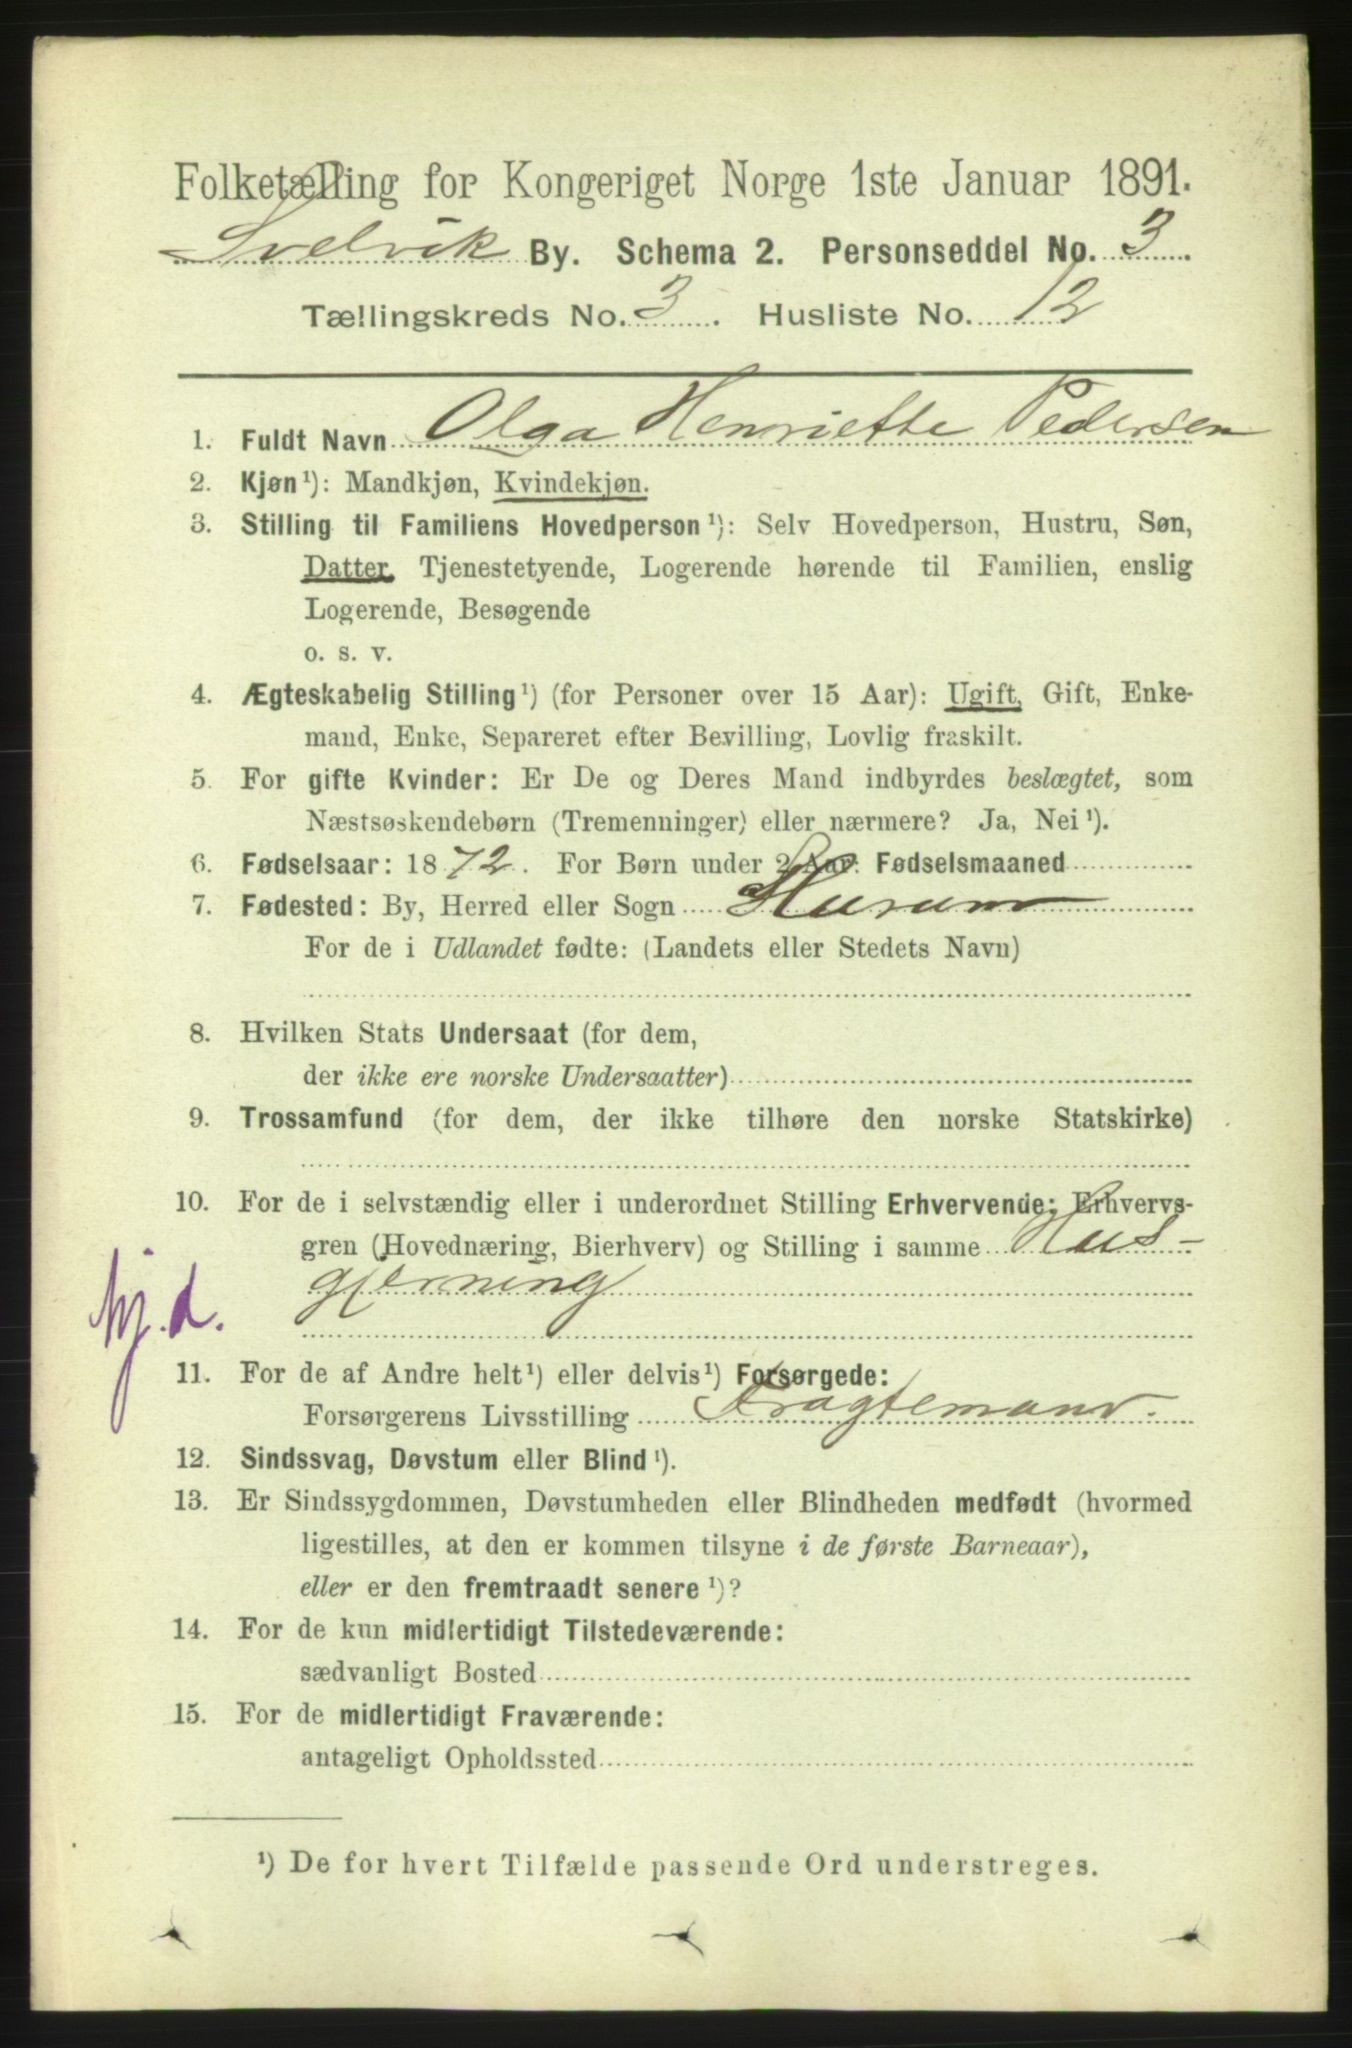 Folketælling for Kongeriget Norge 1ste Januar 1891.
Svelvik By. Schema 2. Personseddel No. 3
Tællingskreds No. 3. Husliste No. 12
1. Fuldt Navn Olga Henriette Pedersen
2. Kjøn¹): Mandkjøn, Kvindekjøn.
3. Stilling til Familiens Hovedperson¹): Selv Hovedperson, Hustru, Søn,
Datter, Tjenestetyende, Logerende hørende til Familien, enslig
Logerende, Besøgende
o. s. v.
4. Ægteskabelig Stilling¹) (for Personer over 15 Aar): Ugift, Gift, Enke-
mand, Enke, Separeret efter Bevilling, Lovlig fraskilt.
5. For gifte Kvinder: Er De og Deres Mand indbyrdes beslægtet, som
Næstsøskendebørn (Tremenninger) eller nærmere? Ja, Nei¹).
6. Fødselsaar: 1872. For Børn under 2 Aar: Fødselsmaaned
7. Fødested: By, Herred eller Sogn Hurum
For de i Udlandet fødte: (Landets eller Stedets Navn)
8. Hvilken Stats Undersaat (for dem,
der ikke ere norske Undersaatter)
9. Trossamfund (for dem, der ikke tilhøre den norske Statskirke)
10. For de i selvstændig eller i underordnet Stilling Erhvervende: Erhvervs-
gren (Hovednæring, Bierhverv) og Stilling i samme Hus-
gjerning
hj. d.
11. For de af Andre helt¹) eller delvis¹) Forsørgede:
Forsørgerens Livsstilling Fragtemand.
12. Sindssvag, Døvstum eller Blind¹).
13. Er Sindssygdommen, Døvstumheden eller Blindheden medfødt (hvormed
ligestilles, at den er kommen tilsyne i de første Barneaar),
eller er den fremtraadt senere¹)?
14. For de kun midlertidigt Tilstedeværende:
sædvanligt Bosted
15. For de midlertidigt Fraværende:
antageligt Opholdssted
¹) De for hvert Tilfælde passende Ord understreges.